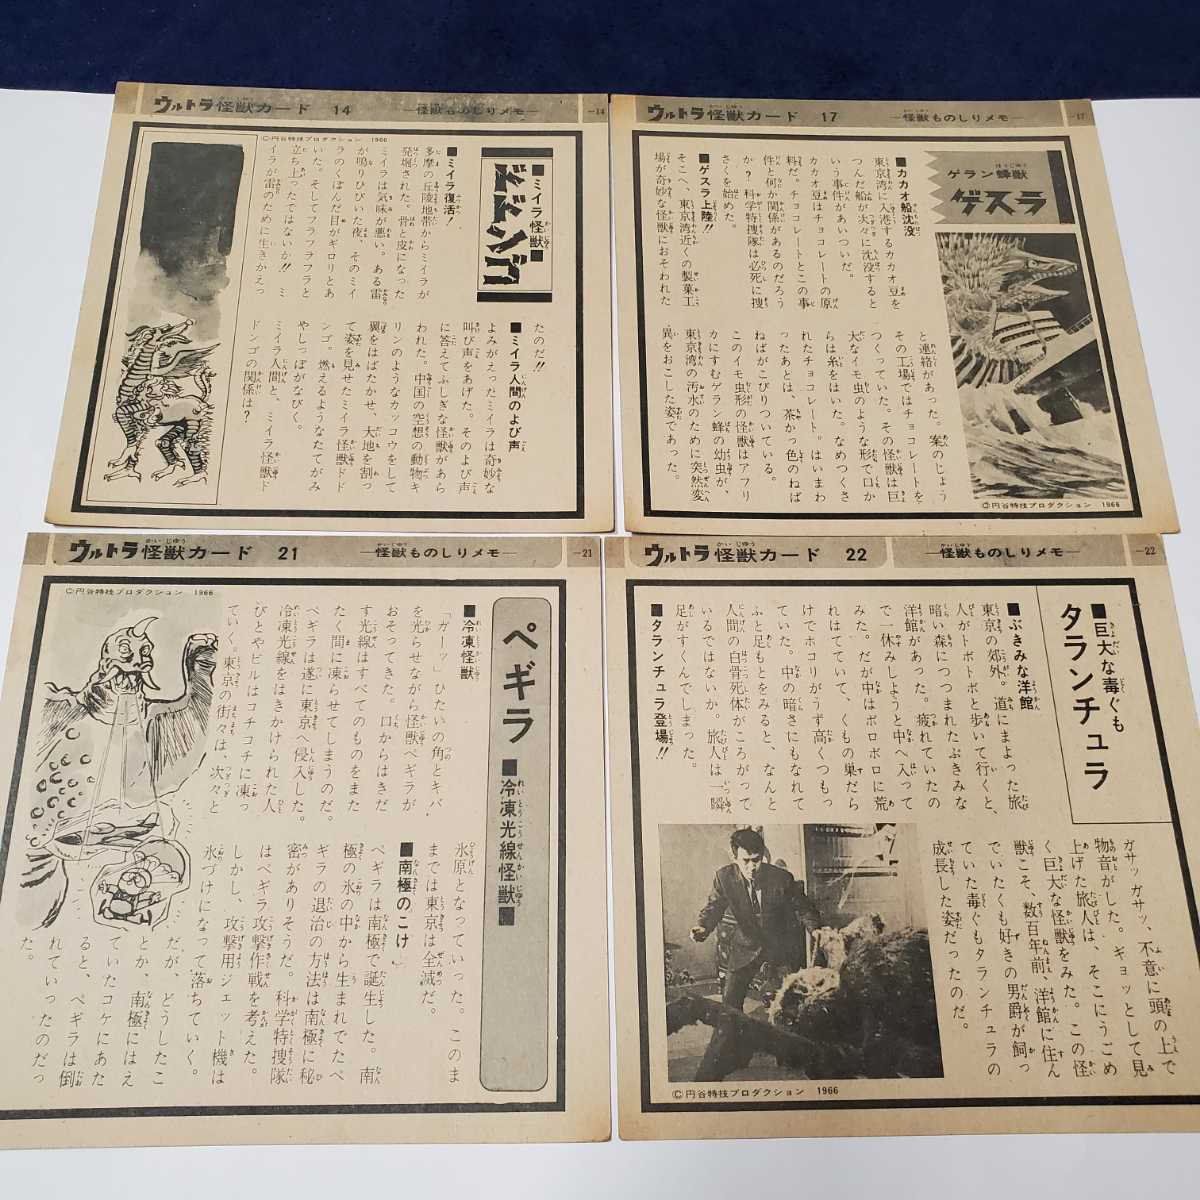 ウルトラ怪獣カード 14 ―怪獣ものしりメモ― ―14
©円谷特技プロダクション 1966
■ミイラ怪獣■
ドドンゴ
■ミイラ復活!
多摩の丘陵地帯からミイラが
発堀された。骨と皮になった
ミイラは気味が悪い。ある雷
が鳴りひびいた夜、そのミイ
ラのくぼんだ目がギロリとあ
いた。そしてフラフラフラと
立ち上ったではないか!! ミ
イラが雷のために生きかえっ
たのだ!!
■ミイラ人間のよび声
よみがえったミイラは奇妙な
叫び声をあげた。そのよび声
に答えてふしぎな怪獣があら
われた。中国の空想の動物キ
リンのようなカッコウをして
翼をはばたかせ、大地を割っ
て姿を見せたミイラ怪獣ドド
ンゴ。燃えるようなたてがみ
やしっぽがなびく。
ミイラ人間と、ミイラ怪獣ド
ドンゴの関係は?
ウルトラ怪獣カード 17 ―怪獣ものしりメモ― ―17
ゲラン蜂獣
ゲスラ
■カカオ船沈没
東京湾に入港するカカオ豆を
つんだ船が次々に沈没すると
いう事件があいついだ。
カカオ豆はチョコレートの原
料だ。チョコレートとこの事
件と何か関係があるのだろう
か? 科学特捜隊は必死に捜
さくを始めた。
■ゲスラ上陸!!
そこへ、東京湾近くの製菓工
場が奇妙な怪獣におそわれた
と連絡があった。案のじよう
その工場ではチョコレートを
つくっていた。その怪獣は巨
大なイモ虫のような形で口か
らは糸をはいた。なめつくさ
れたチョコレート。はいまわ
ったあとは、茶かっ色のねば
ねばがこびりついている。
このイモ虫形の怪獣はアフリ
カにすむゲラン蜂の幼虫が、
東京湾の汚水のために突然変
異をおこした姿であった。
©円谷特技プロダクション 1966
ウルトラ怪獣カード 21 ―怪獣ものしりメモ― ―21
©円谷特技プロダクション 1966
ペギラ
■冷凍光線怪獣■
■冷凍怪獣
「ガーッ」ひたいの角とキバ
を光らせながら怪獣ペギラが
おそってきた。口からはきだ
す光線はすべてのものをまた
たく間に凍らせてしまうのだ。
ペギラは遂に東京へ侵入した。
冷凍光線をはきかけられた人
びとやビルはコチコチに凍っ
ていく。東京の街々は、次々と
氷原となっていった。このま
までは東京は全滅だ。
■南極のこけ
ペギラは南極で誕生した。南
極の氷の中から生まれでたペ
ギラの退治の方法は南極に秘
密がありそうだ。科学特捜隊
はペギラ攻撃作戦を考えた。
しかし、攻撃用ジェット機は
氷づけになって落ちていく。
だが、どうしたこ
とか、南極にはえ
ていたコケにあた
ると、ペギラは倒
れていったのだっ
た。
ウルトラ怪獣カード 22 ―怪獣ものしりメモ― ―22
■巨大な毒ぐも
タランチュラ
■ぶきみな洋館
東京の郊外。道にまよった旅
人がトボトボと歩いて行くと、
暗い森につつまれたぶきみな
洋館があった。疲れていたの
で一休みしようと中へ入って
みた。だが中はボロボロに荒
れはてていて、くもの巣だら
けでホコリがうず高くつもっ
ていた。中の暗さにもなれて
ふと足もとをみると、なんと
人間の白骨死体がころがって
いるではないか。旅人は一瞬
足がすくんでしまった。
■タランチュラ登場!!
ガサッガサッ、不意に頭の上で
物音がした。ギョッとして見
上げた旅人は、そこにうごめ
く巨大な怪獣をみた。この怪
獣こそ、数百年前、洋館に住ん
でいたくも好きの男爵が飼っ
ていた毒ぐもタランチュラの
成長した姿だったのだ。
©円谷特技プロダクション 1966